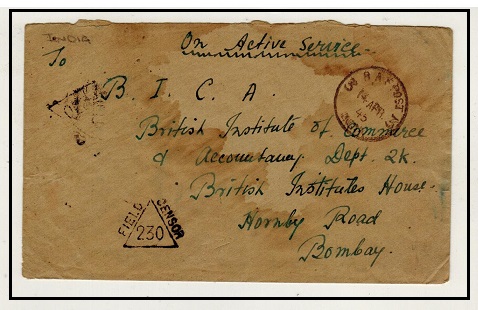 INDIA
On Active Service
To
B. I. C. A.
British Institute of Commerce
& Accountancy. Dept. 2K.
British Institutes House.
Hornby Road
Bombay.
R.A.F. POST
14 APR
43
FIELD CENSOR
230